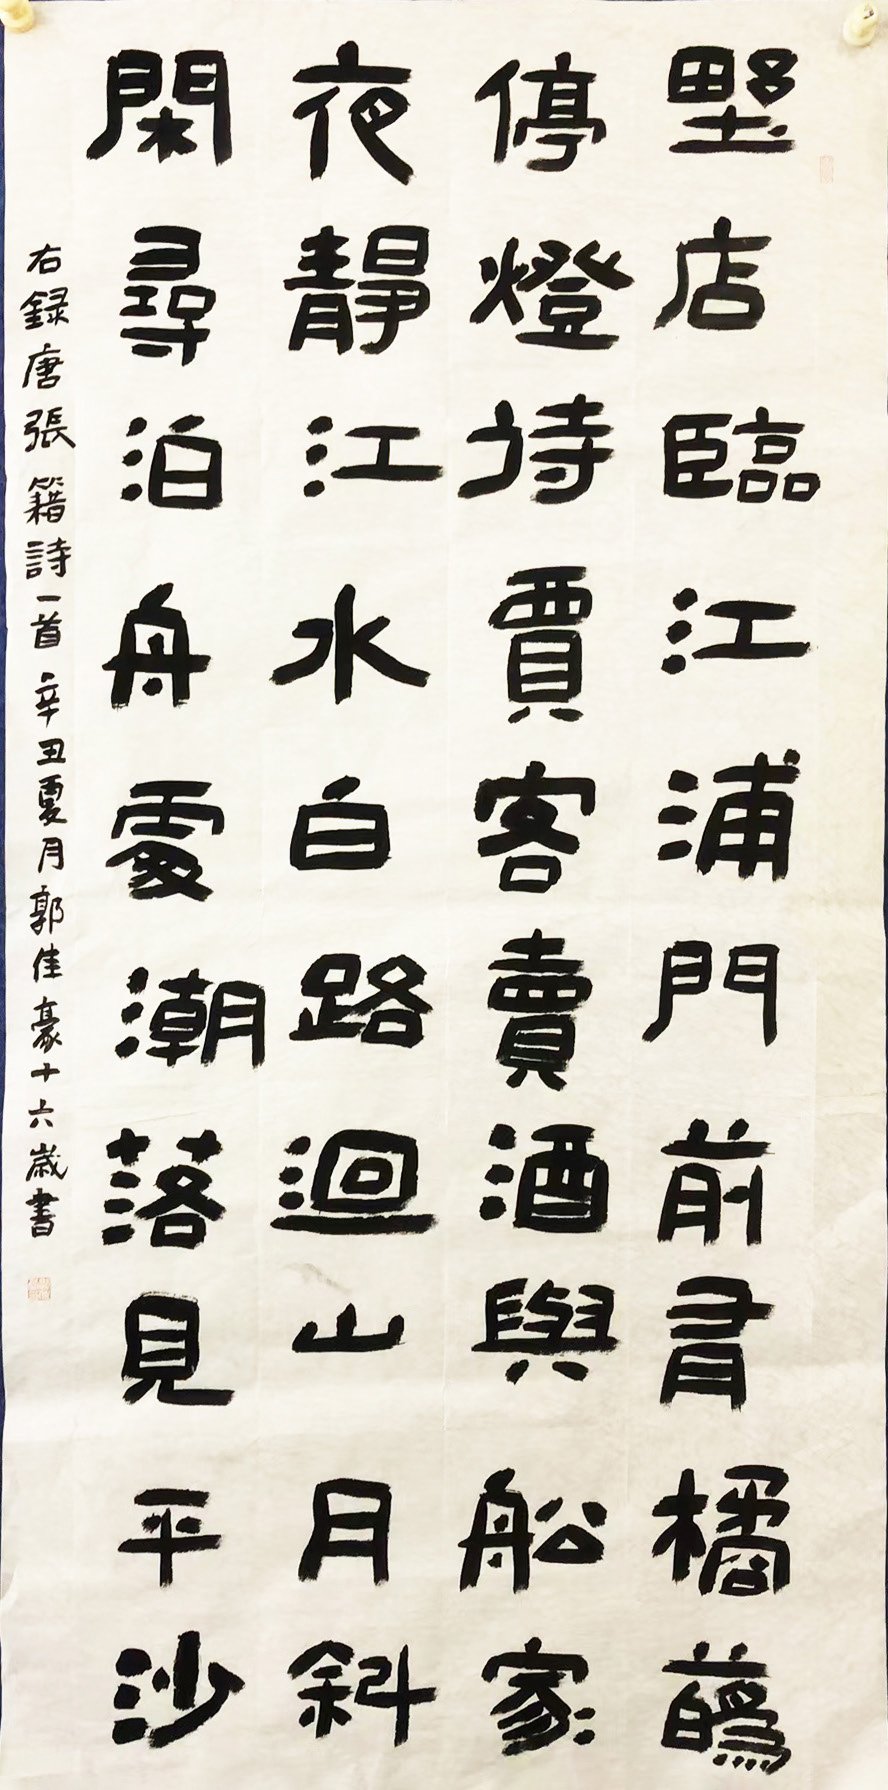 野店臨江浦門前有橘蘤
停燈待賈客賣酒與船家
夜靜江水白路迴山月斜
閑尋泊舟處潮落見平沙
右録唐張籍詩一首辛丑夏月郭佳豪十六歲書